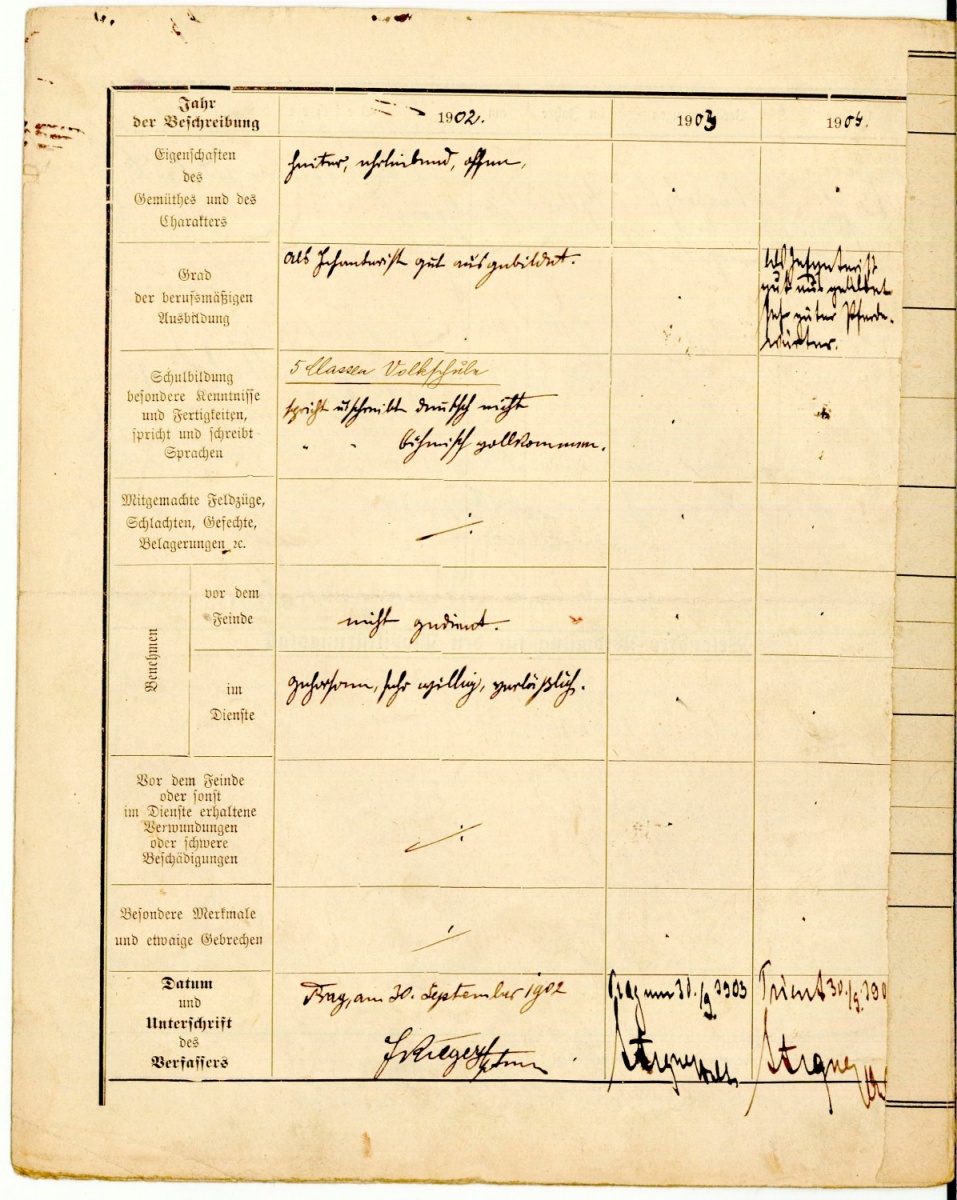 Jahr
der Beschreibung
1902.
1903
1904.
Eigenschaften
des
Gemüthes und des
Charakters
heiter, ehrliebend, offen,
Grad
der berufsmäßigen
Ausbildung
als Infanterist gut ausgebildet.
als Infanterist
gut ausgebildet
sehr guter Pferde-
wärter.
Schulbildung
besondere Kenntnisse
und Fertigkeiten,
spricht und schreibt
Sprachen
5 Classen Volksschule
spricht u schreibt deutsch nicht
" " böhmisch vollkommen.
Mitgemachte Feldzüge,
Schlachten, Gefechte,
Belagerungen ꝛc.
Benehmen
vor dem
Feinde
nicht gedient.
im
Dienste
gehorsam, sehr willig, verläßlich.
Vor dem Feinde
oder sonst
im Dienste erhaltene
Verwundungen
oder schwere
Beschädigungen
Besondere Merkmale
und etwaige Gebrechen
Datum
und
Unterschrift
des
Verfassers
Prag, am 30. September 1902
Prag am 30./9 1903
Trient 30./9. 190